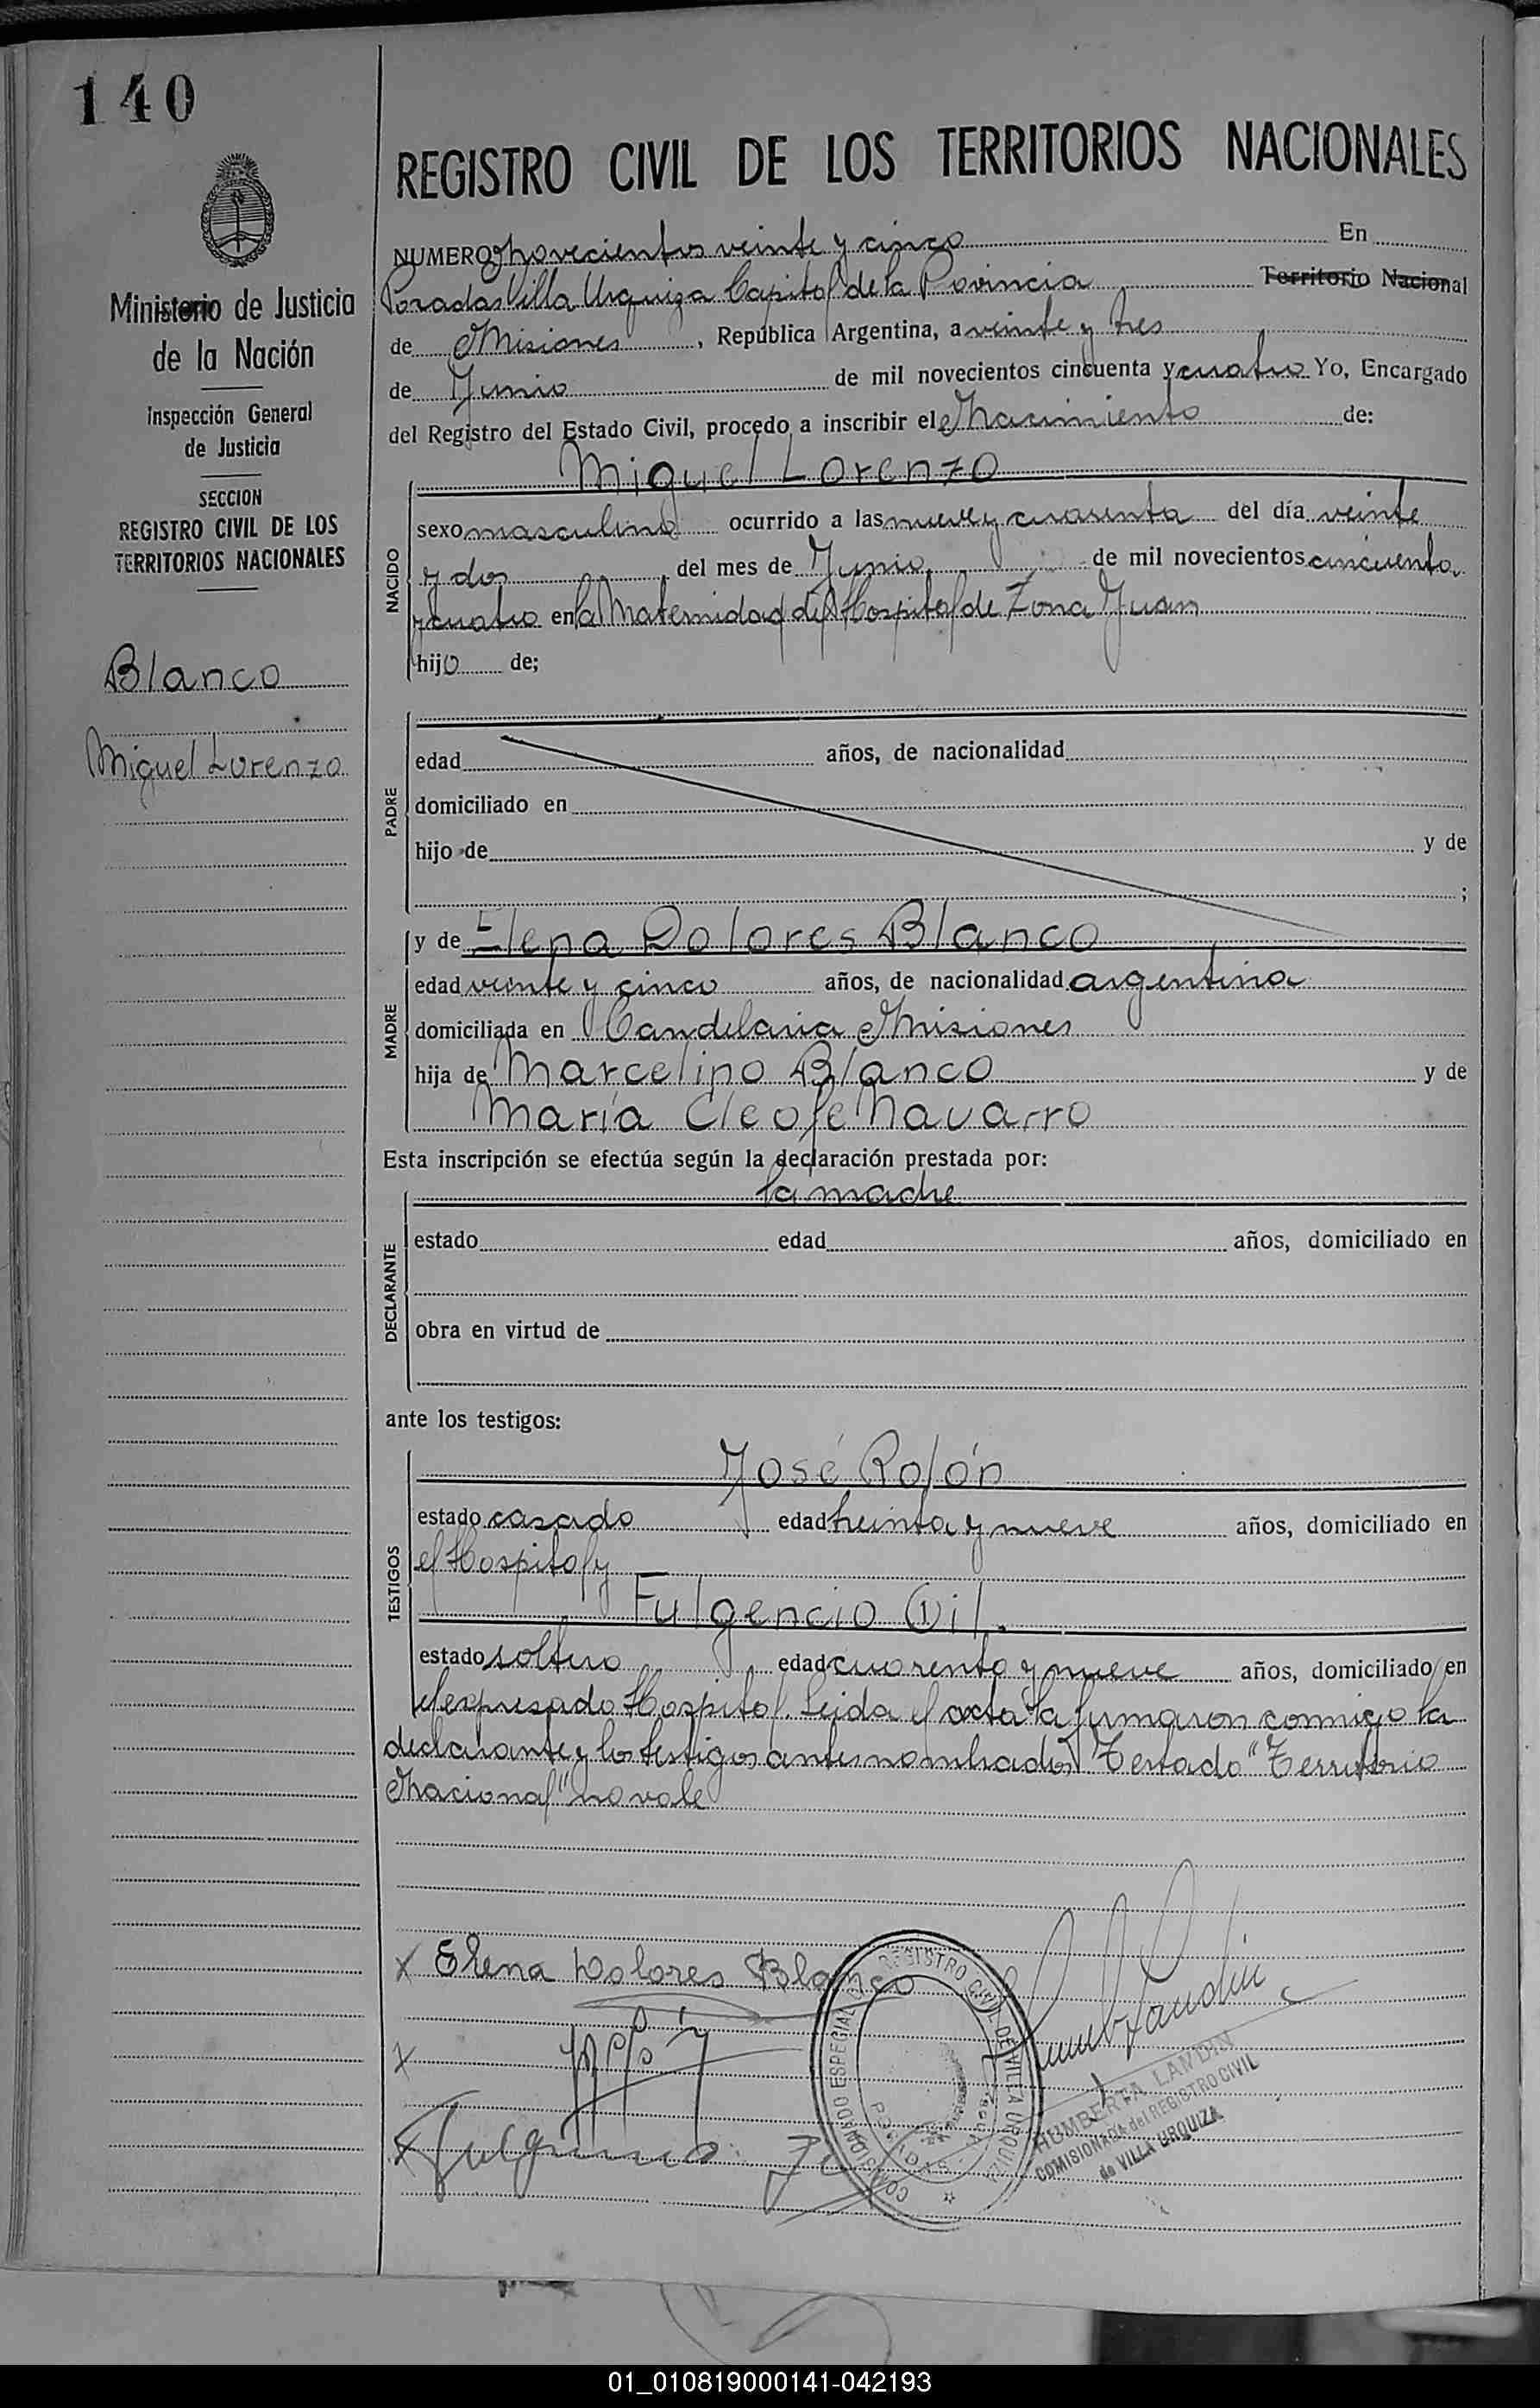 140
Ministerio de Justicia
de la Nación
Inspección General
de Justicia
SECCION
REGISTRO CIVIL DE LOS
TERRITORIOS NACIONALES
Blanco
Miguel Lorenzo
REGISTRO CIVIL DE LOS TERRITORIOS NACIONALES
NUMERO Novecientos veinte y cinco En
Posadas Villa Urquiza Capital de la Provincia Territorio Nacional
de Misiones, República Argentina, a veinte y tres
de Junio de mil novecientos cincuenta y cuatro Yo, Encargado
del Registro del Estado Civil, procedo a inscribir el Nacimiento de:
Miguel Lorenzo
NACIDO
sexo masculino ocurrido a las nueve y cuarenta del día veinte
y dos, del mes de Junio de mil novecientos cincuenta
y cuatro en la Maternidad del Hospital de Zona Juan
hijo de;
PADRE
edad años, de nacionalidad
domiciliado en
hijo de y de
;
MADRE
y de Elena Dolores Blanco
edad veinte y cinco años, de nacionalidad argentina
domiciliada en Candelaria Misiones
hija de Marcelino Blanco y de
María Cleofe Navarro
Esta inscripción se efectúa según la declaración prestada por:
la madre
DECLARANTE
estado edad años, domiciliado en
obra en virtud de
ante los testigos:
José Rolón
TESTIGOS
estado casado edad treinta y nueve años, domiciliado en
el Hospital y
Fulgencio Gil.
estado soltero edad cuarenta y nueve años, domiciliado en
el expresado Hospital. Leida el acta la firmaron conmigo la
declarante y los testigos antes nombrados Testado "Territorio
Nacional" no vale
x Elena Dolores Blanco
x
x Fulgencio Gil
COMISIONADO ESPECIAL REGISTRO CIVIL DE VILLA URQUIZA
POSADAS
HUMBERTA LANDIN
COMISIONADA del REGISTRO CIVIL
de VILLA URQUIZA
01_010819000141-042193